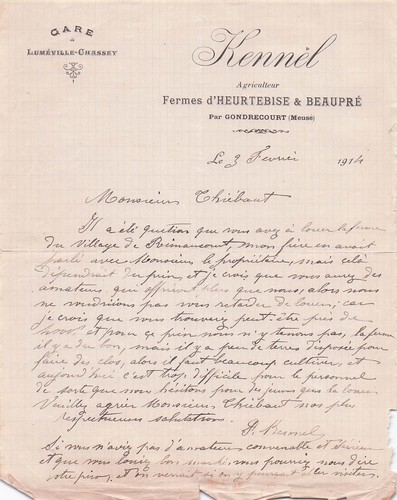 GARE
de
LUMÉVILLE-CHASSEY
Kennel
Agriculteur
Fermes d'HEURTEBISE & BEAUPRÉ
Par GONDRECOURT (Meuse)
Le 3 Fevrier 1914
Monsieur Thiébaut
Il a été question que vous avez à louer la ferme
du Village de Rimaucourt, mon frère en avait
parlé avec Monsieur le propriétaire, mais celà
dépendrait du prix, et je crois que vous aurez des
amateurs, qui offriront plus que nous, alors nous
ne voudrions pas vous retarder de louer, car
je crois que vous trouverez peut être près de
et pour ce prix nous n'y tenons pas, la ferme
il y a du bon, mais il y a peu de terres disposée pour
faire des clos, alors il faut beaucoup cultiver, et
aujourd'hui c'est trop difficile pour le personnel
de sorte que nous hésitons pour
Veuillez agréer Monsieur Thiébaut nos plus
respectueuses salutations.
Si vous n'aviez pas d'amateur convenable et
et que vous louiez bon marché, vous pourriez nous dire
votre prix, et on verrait si on pourrait aller visiter.